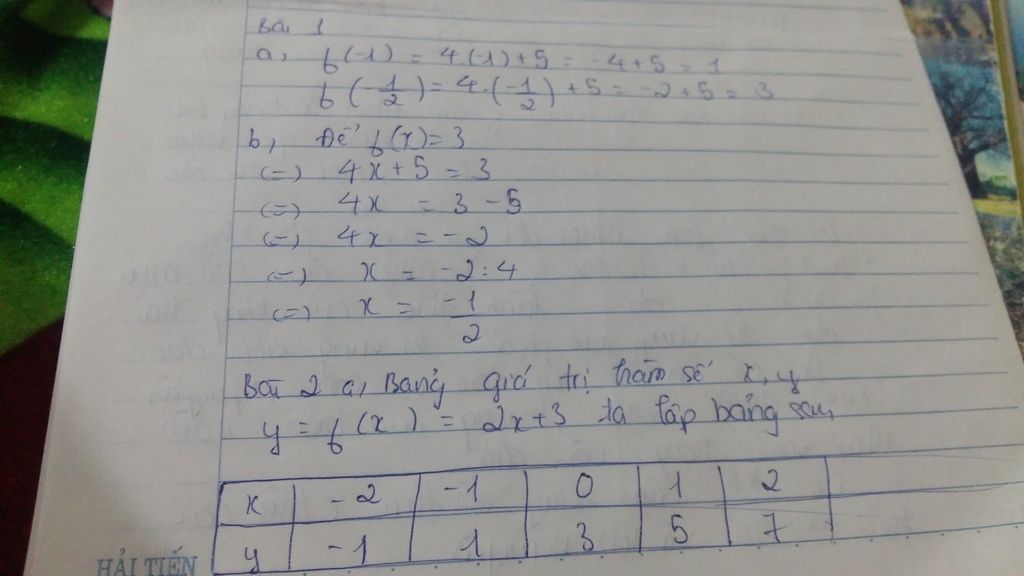 Bài 1
a, f(-1) = 4(-1)+5 = -4+5 = 1
f(-1/2) = 4.(-1/2) + 5 = -2+5 = 3
b, Để f(x) = 3
(=) 4x+5 = 3
(=) 4x = 3 - 5
(=) 4x = -2
(=) x = -2:4
(=) x = -1/2
Bài 2 a, Bảng giá trị hàm số x, y
y = f(x) = 2x+3 ta lập bảng sau
x -2 -1 0 1 2
y -1 1 3 5 7
HẢI TIẾN